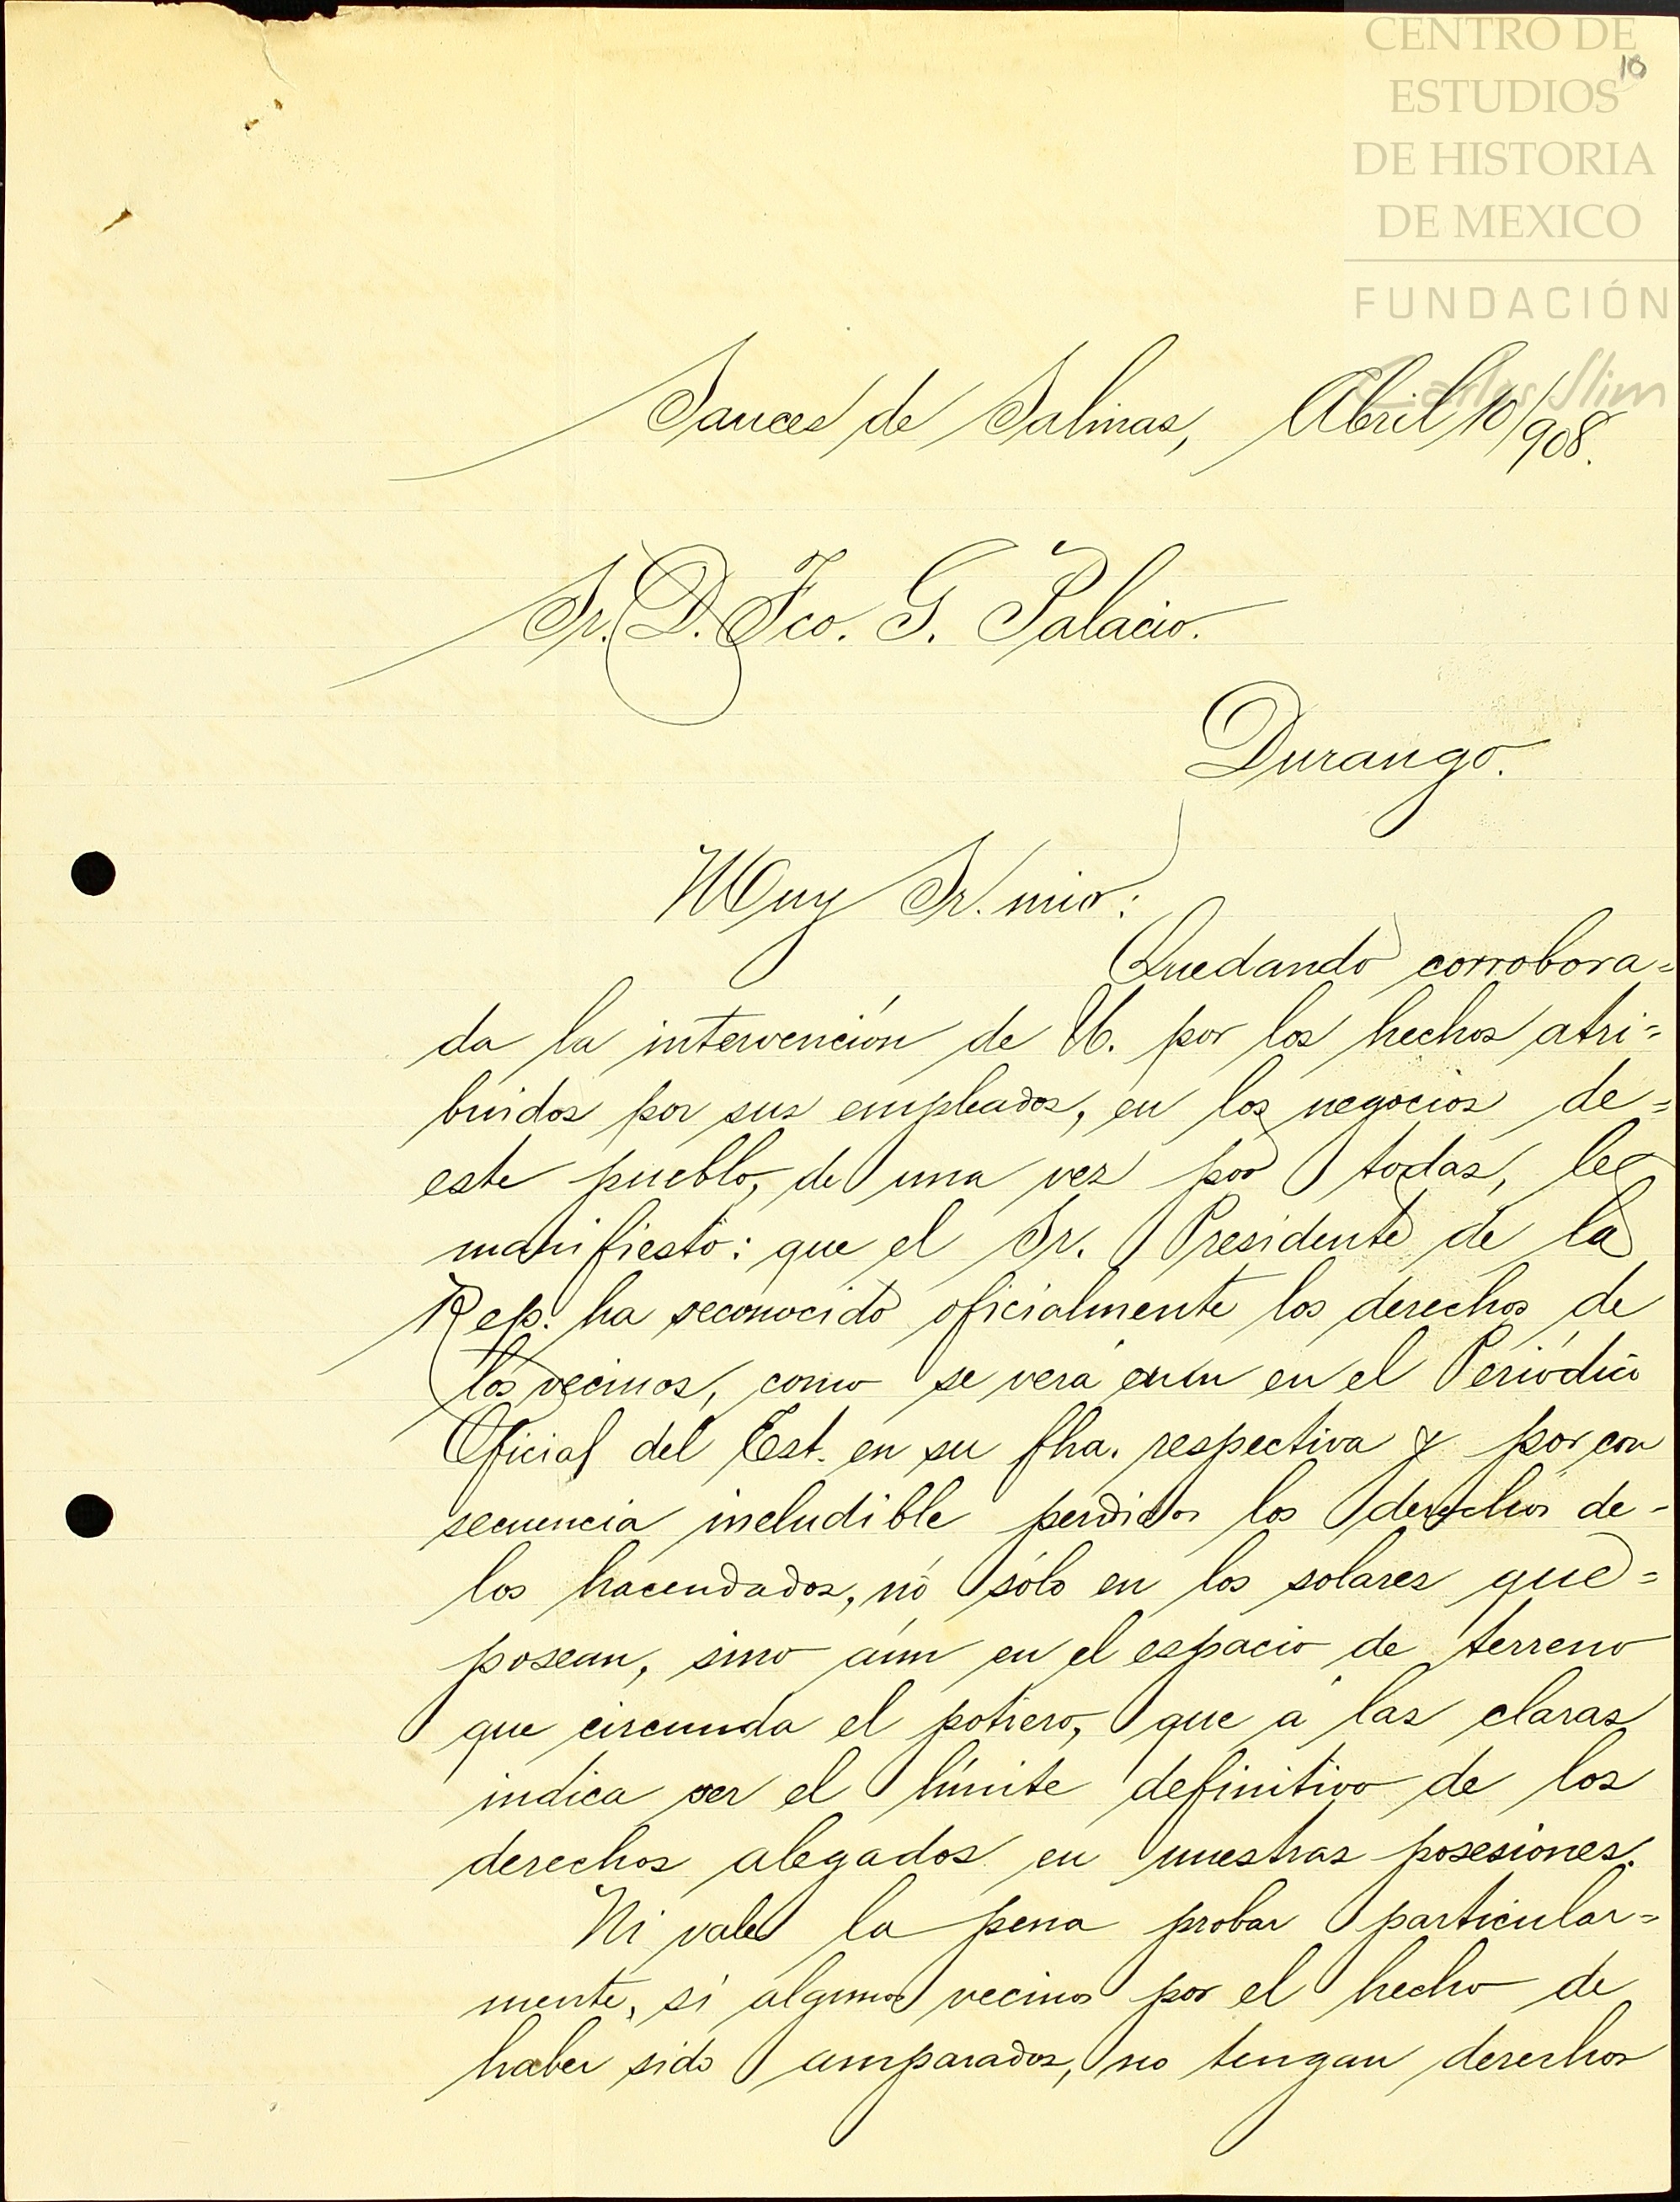 CENTRO DE
ESTUDIOS
DE HISTORIA
DE MEXICO
FUNDACIÓN
Carlos Slim
10
Sauces de Salinas, Abril 10/908.
Sr. D. Fco. G. Palacio.
Durango.
Muy Sr. mio:
Quedando corrobora=
da la intervención de U. por los hechos atri=
buidos por sus empleados, en los negocios de=
este pueblo, de una vez por todas, le
manifiesto: que el Sr. Presidente de la
Rep. ha reconocido oficialmente los derechos de
los vecinos, como se verá en el Periódico
Oficial del Est. en su fha. respectiva y por con
secuencia ineludible perdidos los derechos de-
los hacendados, nó sólo en los solares que=
posean, sino aún en el espacio de terreno
que circunda el potrero, que á las claras
indica ser el límite definitivo de los
derechos alegados en nuestras posesiones.
Ni vale la pena probar particular=
mente, si algunos vecinos por el hecho de
haber sido amparados, no tengan derechos